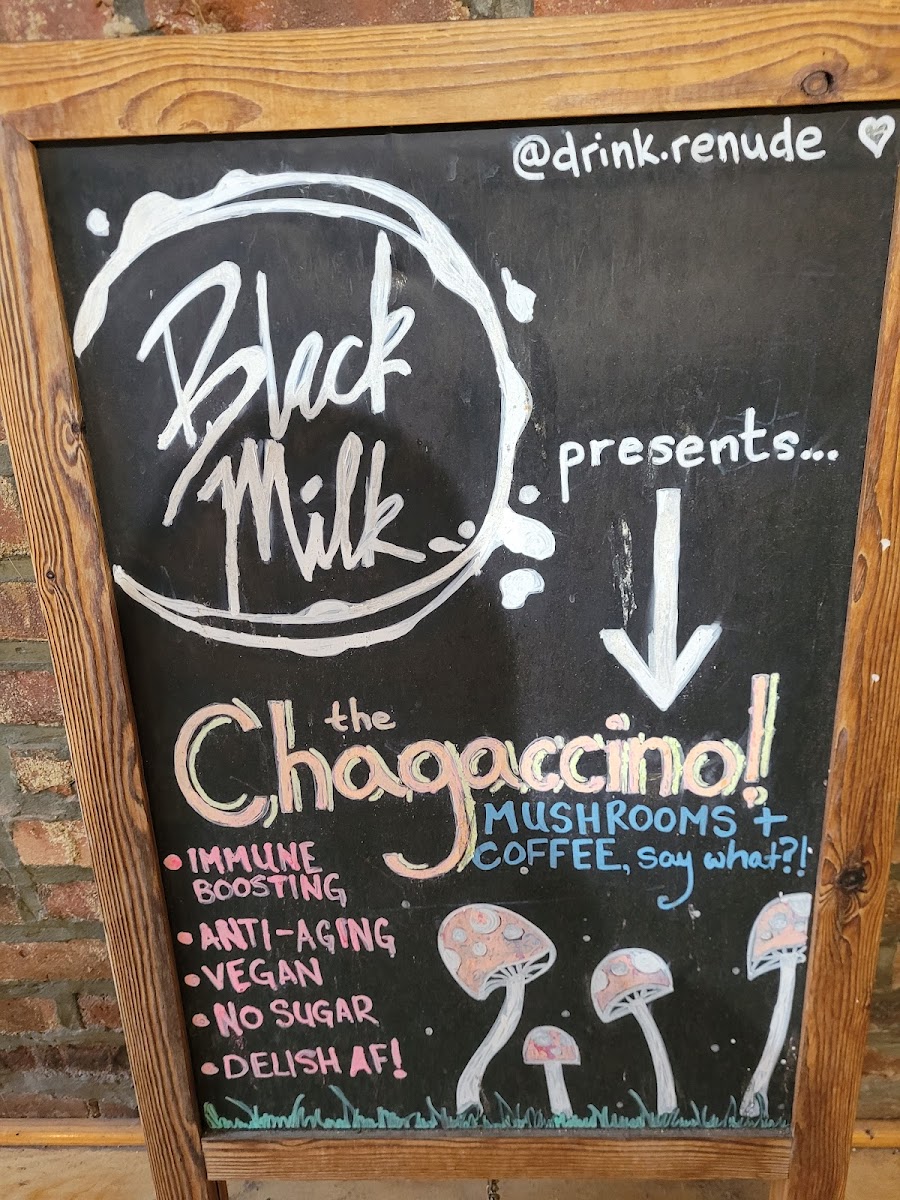 @drink.renude
Black
Milk
presents...
the
Chagaccino!
MUSHROOMS +
COFFEE, say what?!
• IMMUNE
BOOSTING
• ANTI-AGING
• VEGAN
• NO SUGAR
• DELISH AF!